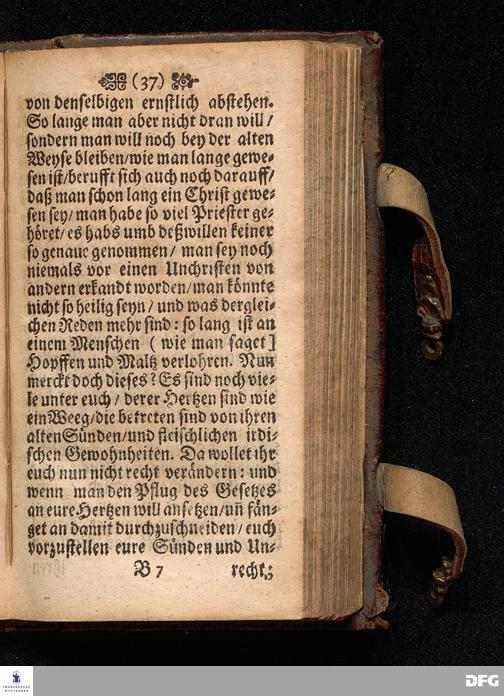 (37)
von denselbigen ernstlich abstehen.
So lange man aber nicht dran will /
sondern man will noch bey der alten
Weyse bleiben/wie man lange gewe-
sen ist/berufft sich auch noch darauff/
daß man schon lang ein Christ gewe-
sen sey/man habe so viel Priester ge-
höret/es habs umb deßwillen keiner
so genaue genommen / man sey noch
niemals vor einen Unchristen von
andern erkandt worden/man könnte
nicht so heilig seyn / und was derglei-
chen Reden mehr sind : so lang ist an
einem Menschen ( wie man saget ]
Hopffen und Maltz verlohren. Nun
merckt doch dieses? Es sind noch vie-
le unter euch / derer Hertzen sind wie
ein Weeg/die betreten sind von ihren
alten Sünden/und fleischlichen irdi-
schen Gewohnheiten. Da wollet ihr
euch nun nicht recht verändern : und
wenn man den Pflug des Gesetzes
an eure Hertzen will ansetzen/uñ fän-
get an damit durchzuschneiden / euch
vorzustellen eure Sünden und Un-
B 7 recht;
FRANCKESCHE STIFTUNGEN
DFG